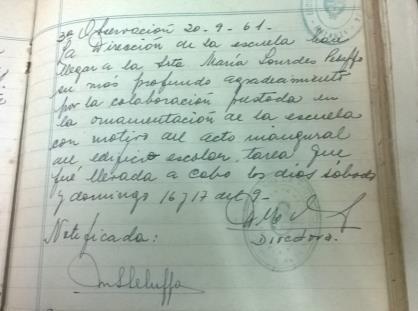 3a Observación 20-9-61.
La Dirección de la escuela hace
llegar a la Srta María Lourdes Peluffo
su más profundo agradecimiento
por la colaboración prestada en
la ornamentación de la escuela
con motivo del acto inaugural
del edificio escolar, tarea que
fué llevada a cabo los días sábado
y domingo 16 y 17 del 9-
Directora.
Notificada: